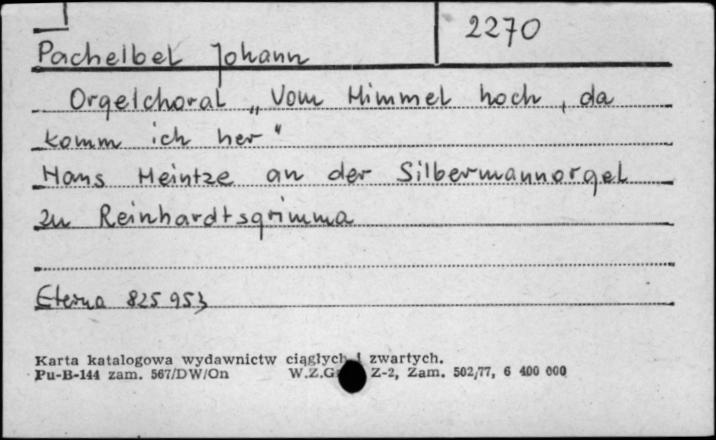 2270
Pachelbel Johann
Orgelchoral „Vom Himmel hoch, da
komm ich her"
Hans Heintze an der Silbermannorgel
zu Reinhardtsgrimma
Eterna 825 953
Karta katalogowa wydawnictw ciągłych i zwartych.
Pu-B-144 zam. 567/DW/On W.Z.G Z-2, Zam. 502/77, 6 400 000